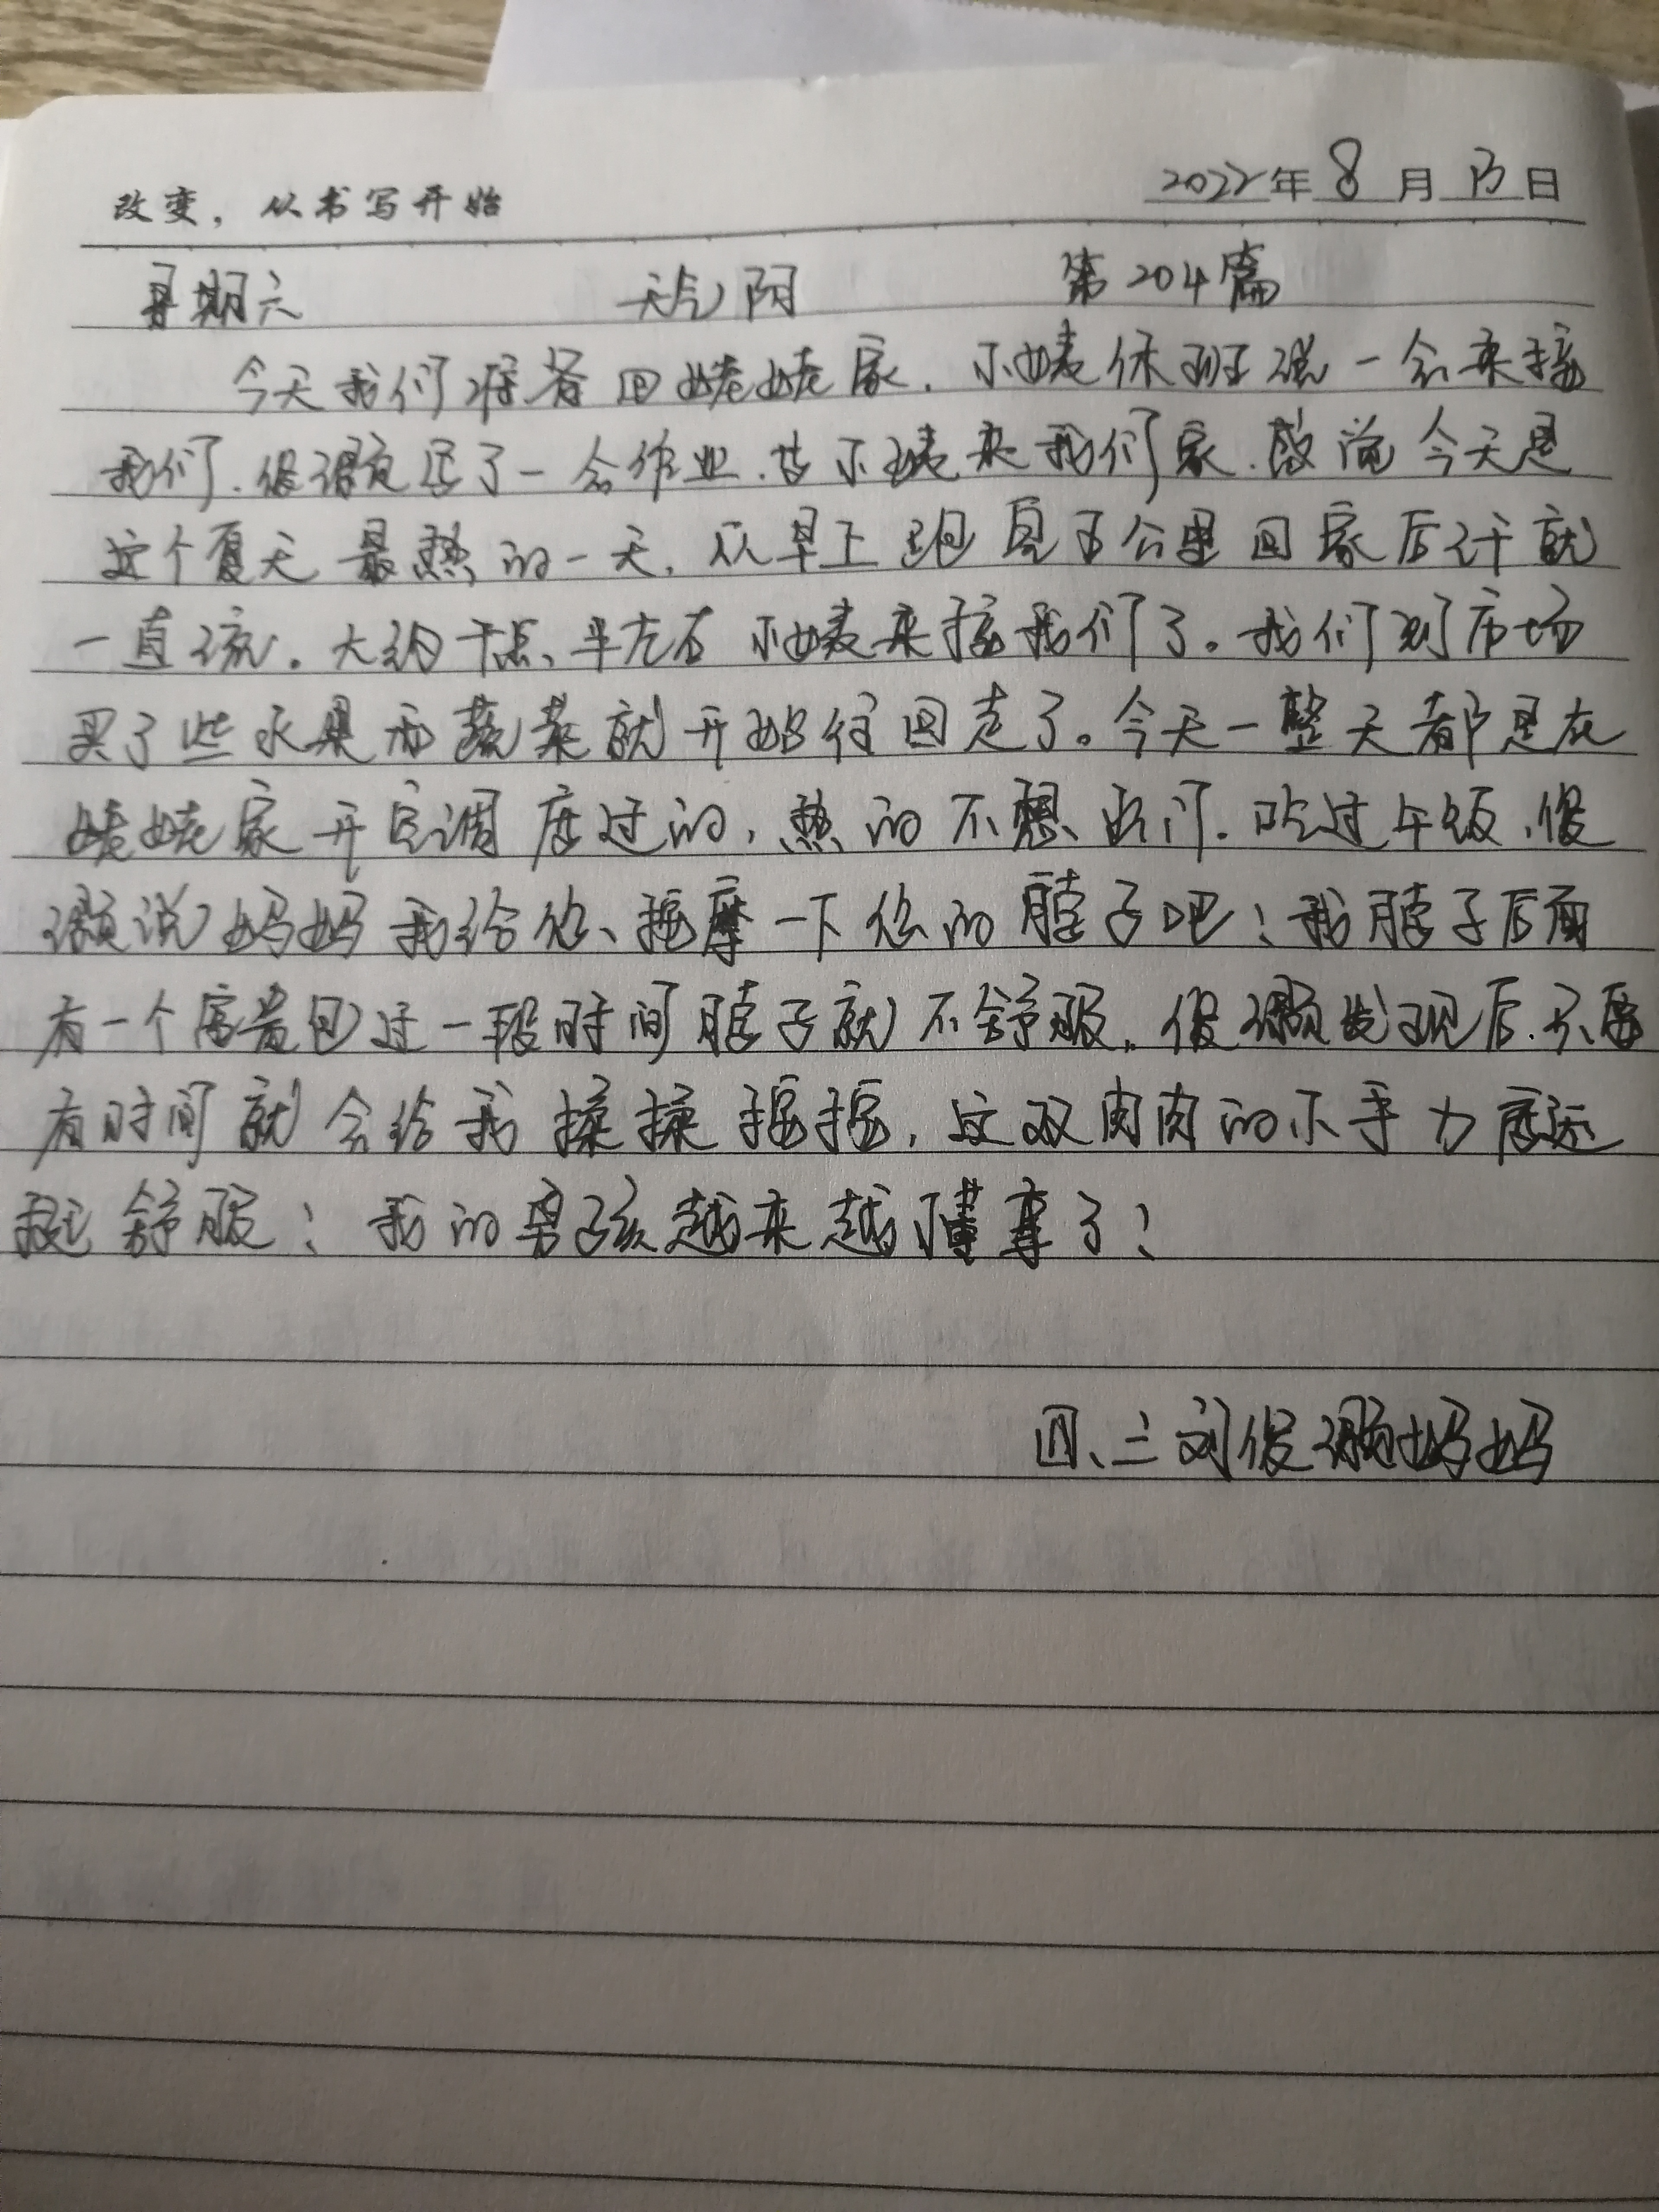 改变，从书写开始
2022年8月13日
星期六 天气阴 第204篇
今天我们准备回姥姥家，小姨休班说一会来接
我们，俊灏写了一会作业，等小姨来我们家，感觉今天是
这个夏天最热的一天，从早上跑完五公里回家后汗就
一直流。大约十点半左右小姨来接我们了。我们到市场
买了些水果和蔬菜就开始往回走了。今天一整天都是在
姥姥家开空调度过的，热的不想出门。吃过午饭，俊
灏说妈妈我给您按摩一下您的脖子吧！我脖子后面
有一个富贵包过一段时间脖子就不舒服，俊灏发现后，只要
有时间就会给我揉揉按按，这双肉肉的小手力度还
挺舒服！我的男孩越来越懂事了！
四、三刘俊灏妈妈